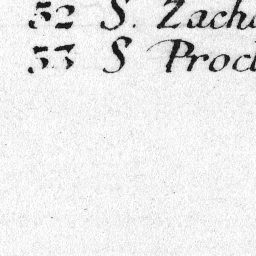 52 S. Zacha
53 S Procl